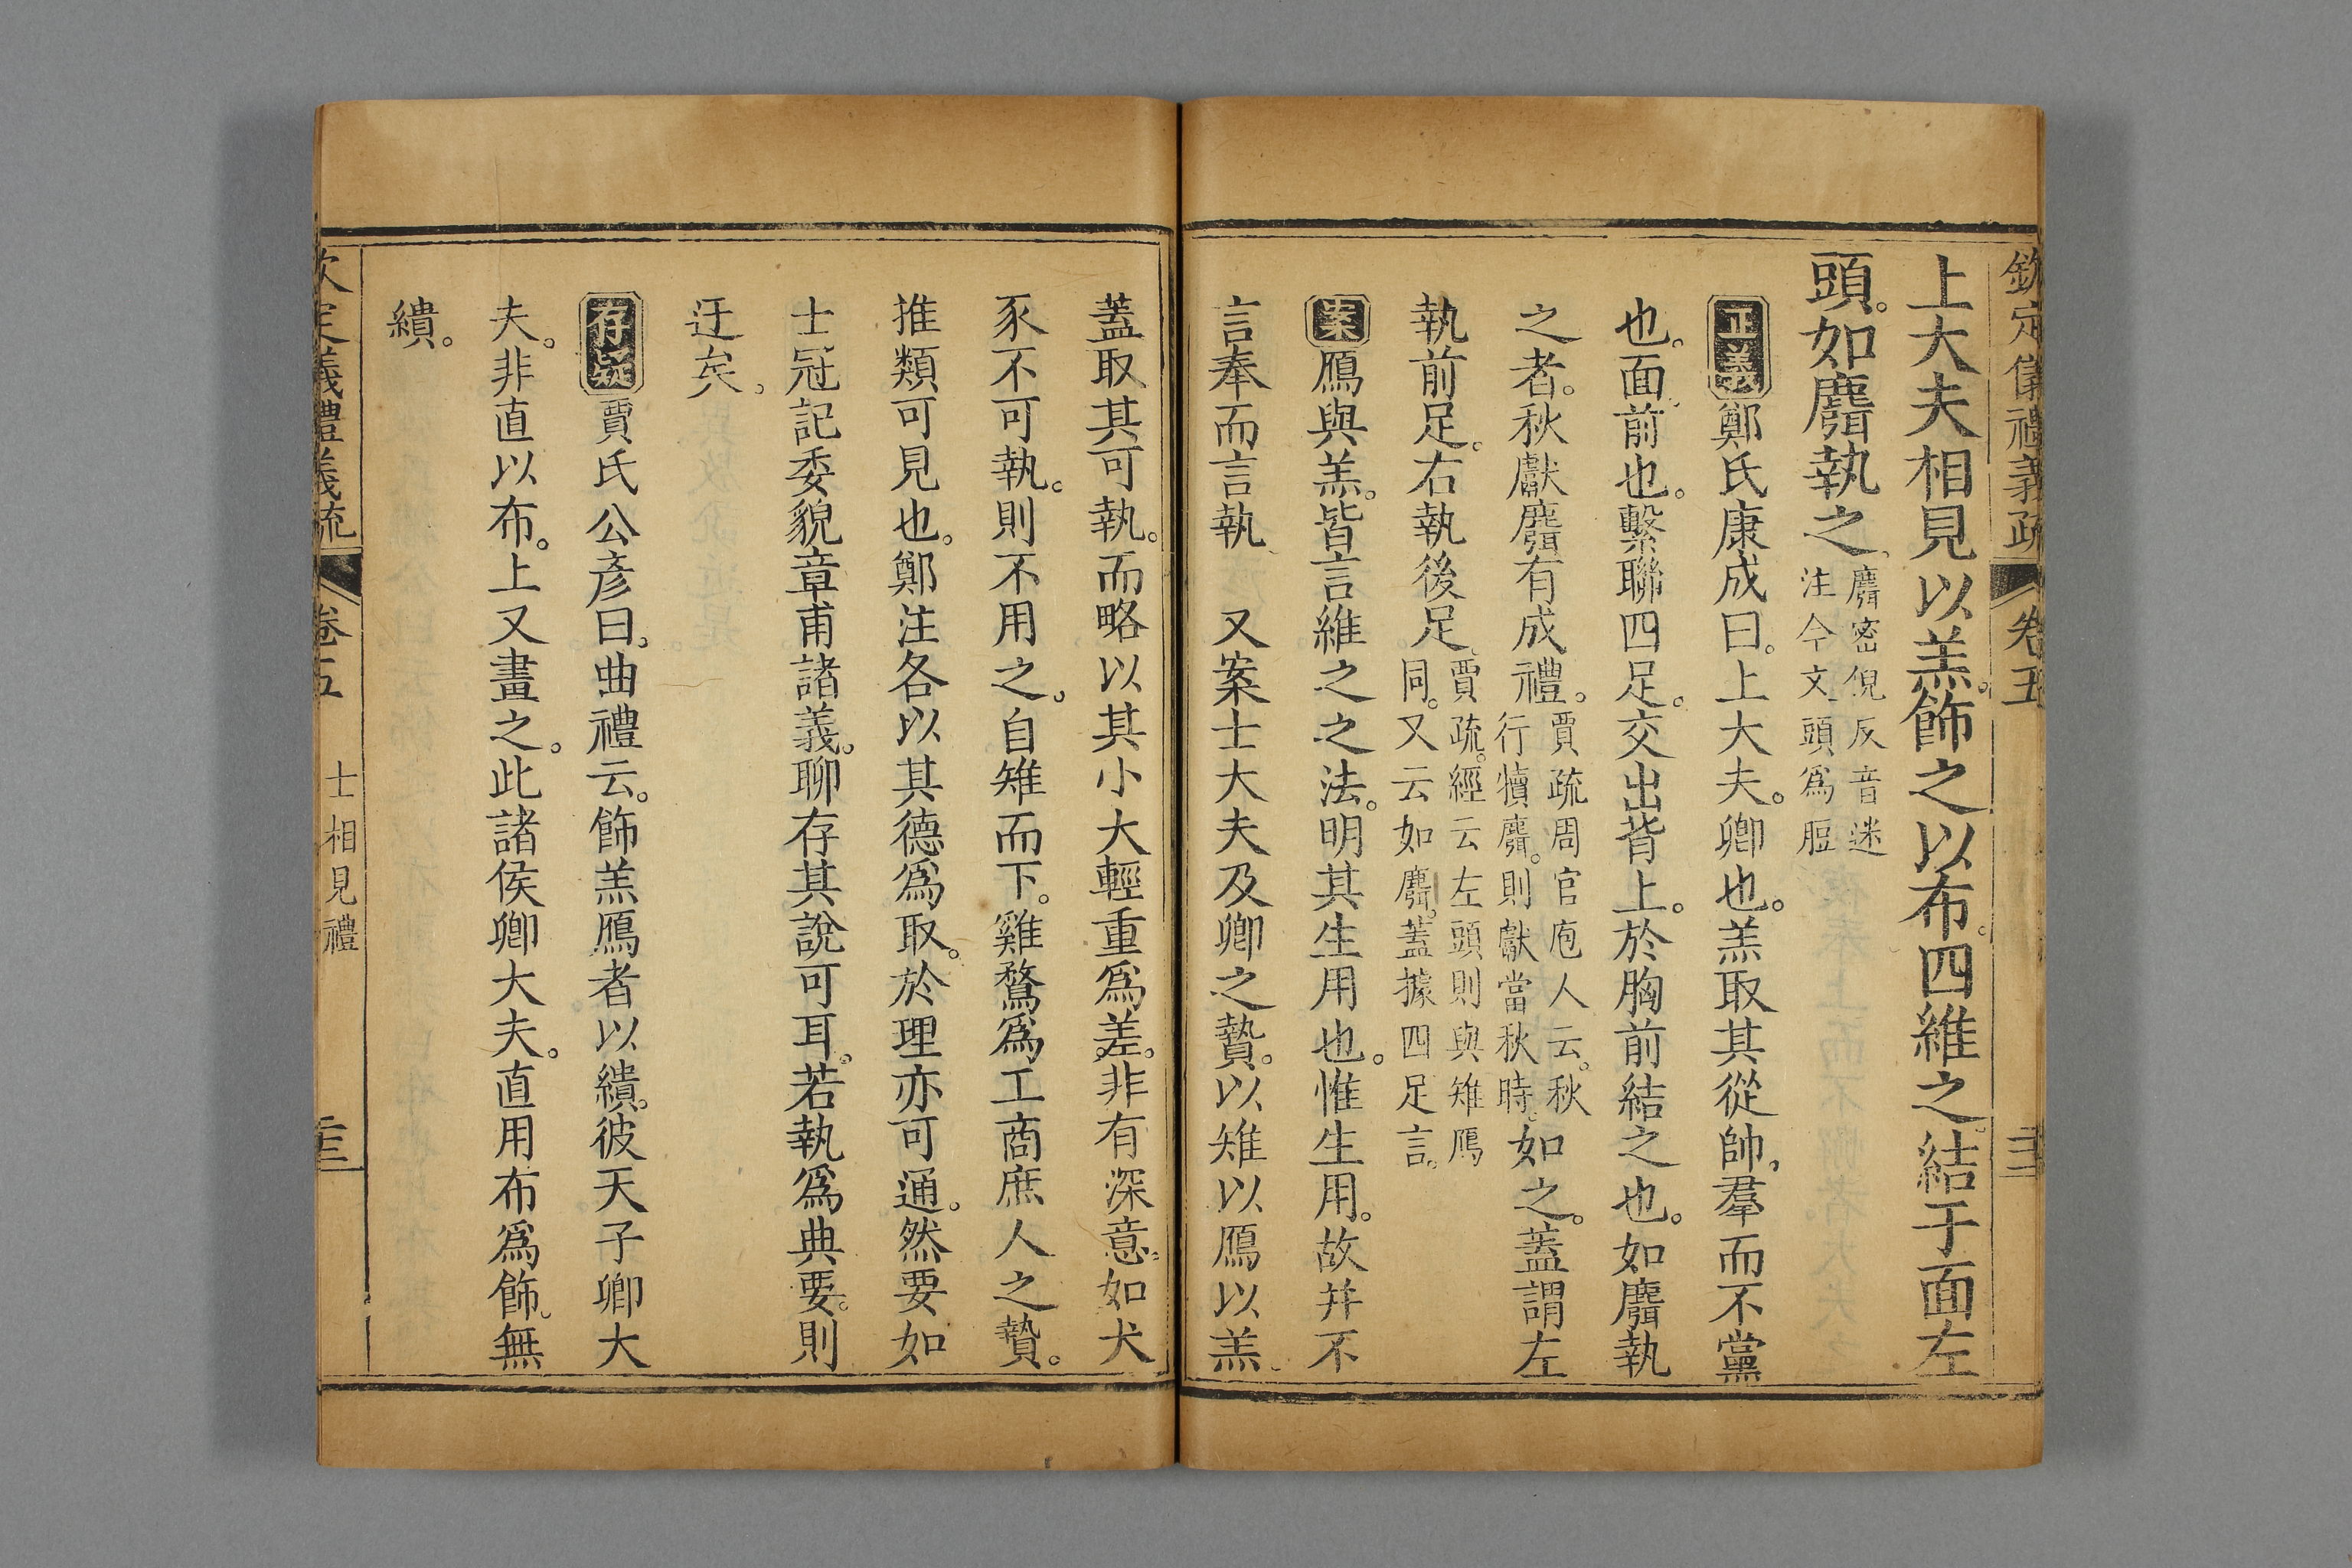 欽定儀禮義疏 卷五 二十二
上大夫相見以羔。飾之以布。四維之。結于面左
頭。如麛執之。麛密倪反音迷
注今文頭爲脰
正義鄭氏康成曰。上大夫。卿也。羔取其從帥。羣而不黨
也。面前也。繫聯四足。交出背上。於胸前結之也。如麛執
之者。秋獻麛有成禮。賈疏周官庖人云。秋
行犢麛。則獻當秋時。如之。蓋謂左
執前足。右執後足。賈疏。經云左頭則與雉鴈
同。又云如麛。蓋據四足言。
案鴈與羔。皆言維之之法。明其生用也。惟生用。故幷不
言奉而言執 又案士大夫及卿之贄。以雉以鴈以羔。
蓋取其可執。而略以其小大輕重爲差。非有深意。如犬
豕不可執。則不用之。自雉而下。雞鶩爲工商庶人之贄。
推類可見也。鄭注各以其德爲取。於理亦可通。然要如
士冠記委貌章甫諸義。聊存其說可耳。若執爲典要。則
迂矣。
存疑賈氏公彥曰。曲禮云。飾羔鴈者以繢。彼天子卿大
夫。非直以布。上又畫之。此諸侯卿大夫。直用布爲飾。無
繢。
欽定儀禮義疏 卷五 士相見禮 二十三